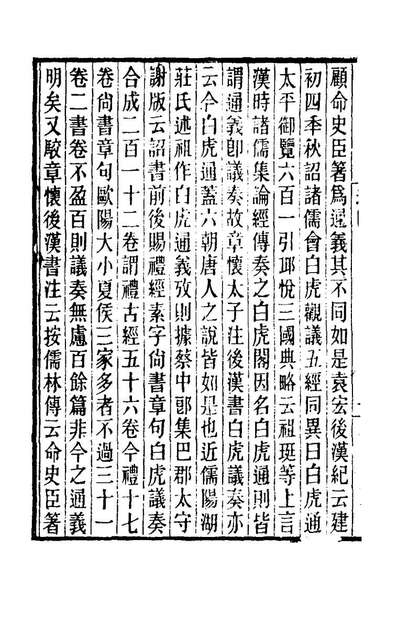 顧命史臣著爲通義其不同如是袁宏後漢紀云建
初四季秋詔諸儒會白虎觀議五經同異曰白虎通
太平御覽六百一引邱悅三國典略云祖珽等上言
漢時諸儒集論經傳奏之白虎閣因名白虎通則皆
謂通義卽議奏故章懷太子注後漢書白虎議奏亦
云今白虎通蓋六朝唐人之說皆如是也近儒陽湖
莊氏述祖作白虎通義攷則據蔡中郎集巴郡太守
謝版云詔書前後賜禮經素字尚書章句白虎議奏
合成二百一十二卷謂禮古經五十六卷今禮十七
卷尚書章句歐陽大小夏侯三家多者不過三十一
卷二書卷不盈百則議奏無慮百餘篇非今之通義
明矣又駮章懷後漢書注云按儒林傳云命史臣著